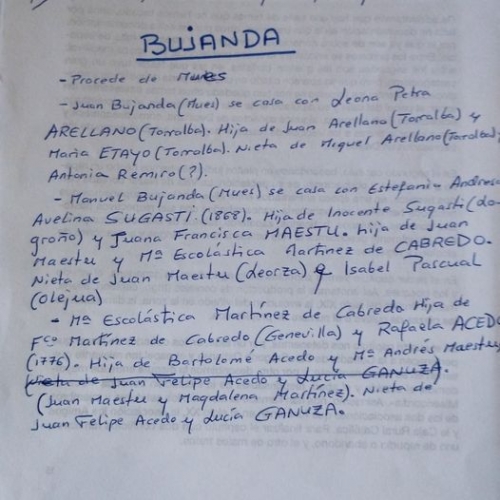 BUJANDA
- Procede de Mues
- Juan Bujanda (Mues) se casa con Leona Petra
ARELLANO (Torralba). Hija de Juan Arellano (Torralba) y
Maria ETAYO (Torralba). Nieta de Miguel Arellano (Torralba)
Antonia Remiro (?).
- Manuel Bujanda (Mues) se casa con Estefania Andresa
Avelina SUGASTI. (1868). Hija de Inocente Sugasti (Lo-
groño) y Juana Francisca MAESTU. hija de Juan
Maestu y Mª Escolástica Martinez de CABREDO.
Nieta de Juan Maestu (Learza) y Isabel Pascual
(Olejua)
- Mª Escolástica Martínez de Cabredo Hija de
Fcº Martínez de Cabredo (Genevilla) y Rafaela ACEDO
(1776). Hija de Bartolomé Acedo y Mª Andrés Maestu
(Nieta de Juan Felipe Acedo y Lucía GANUZA).
(Juan Maestu y Magdalena Martínez). Nieta de
Juan Felipe Acedo y Lucía GANUZA.